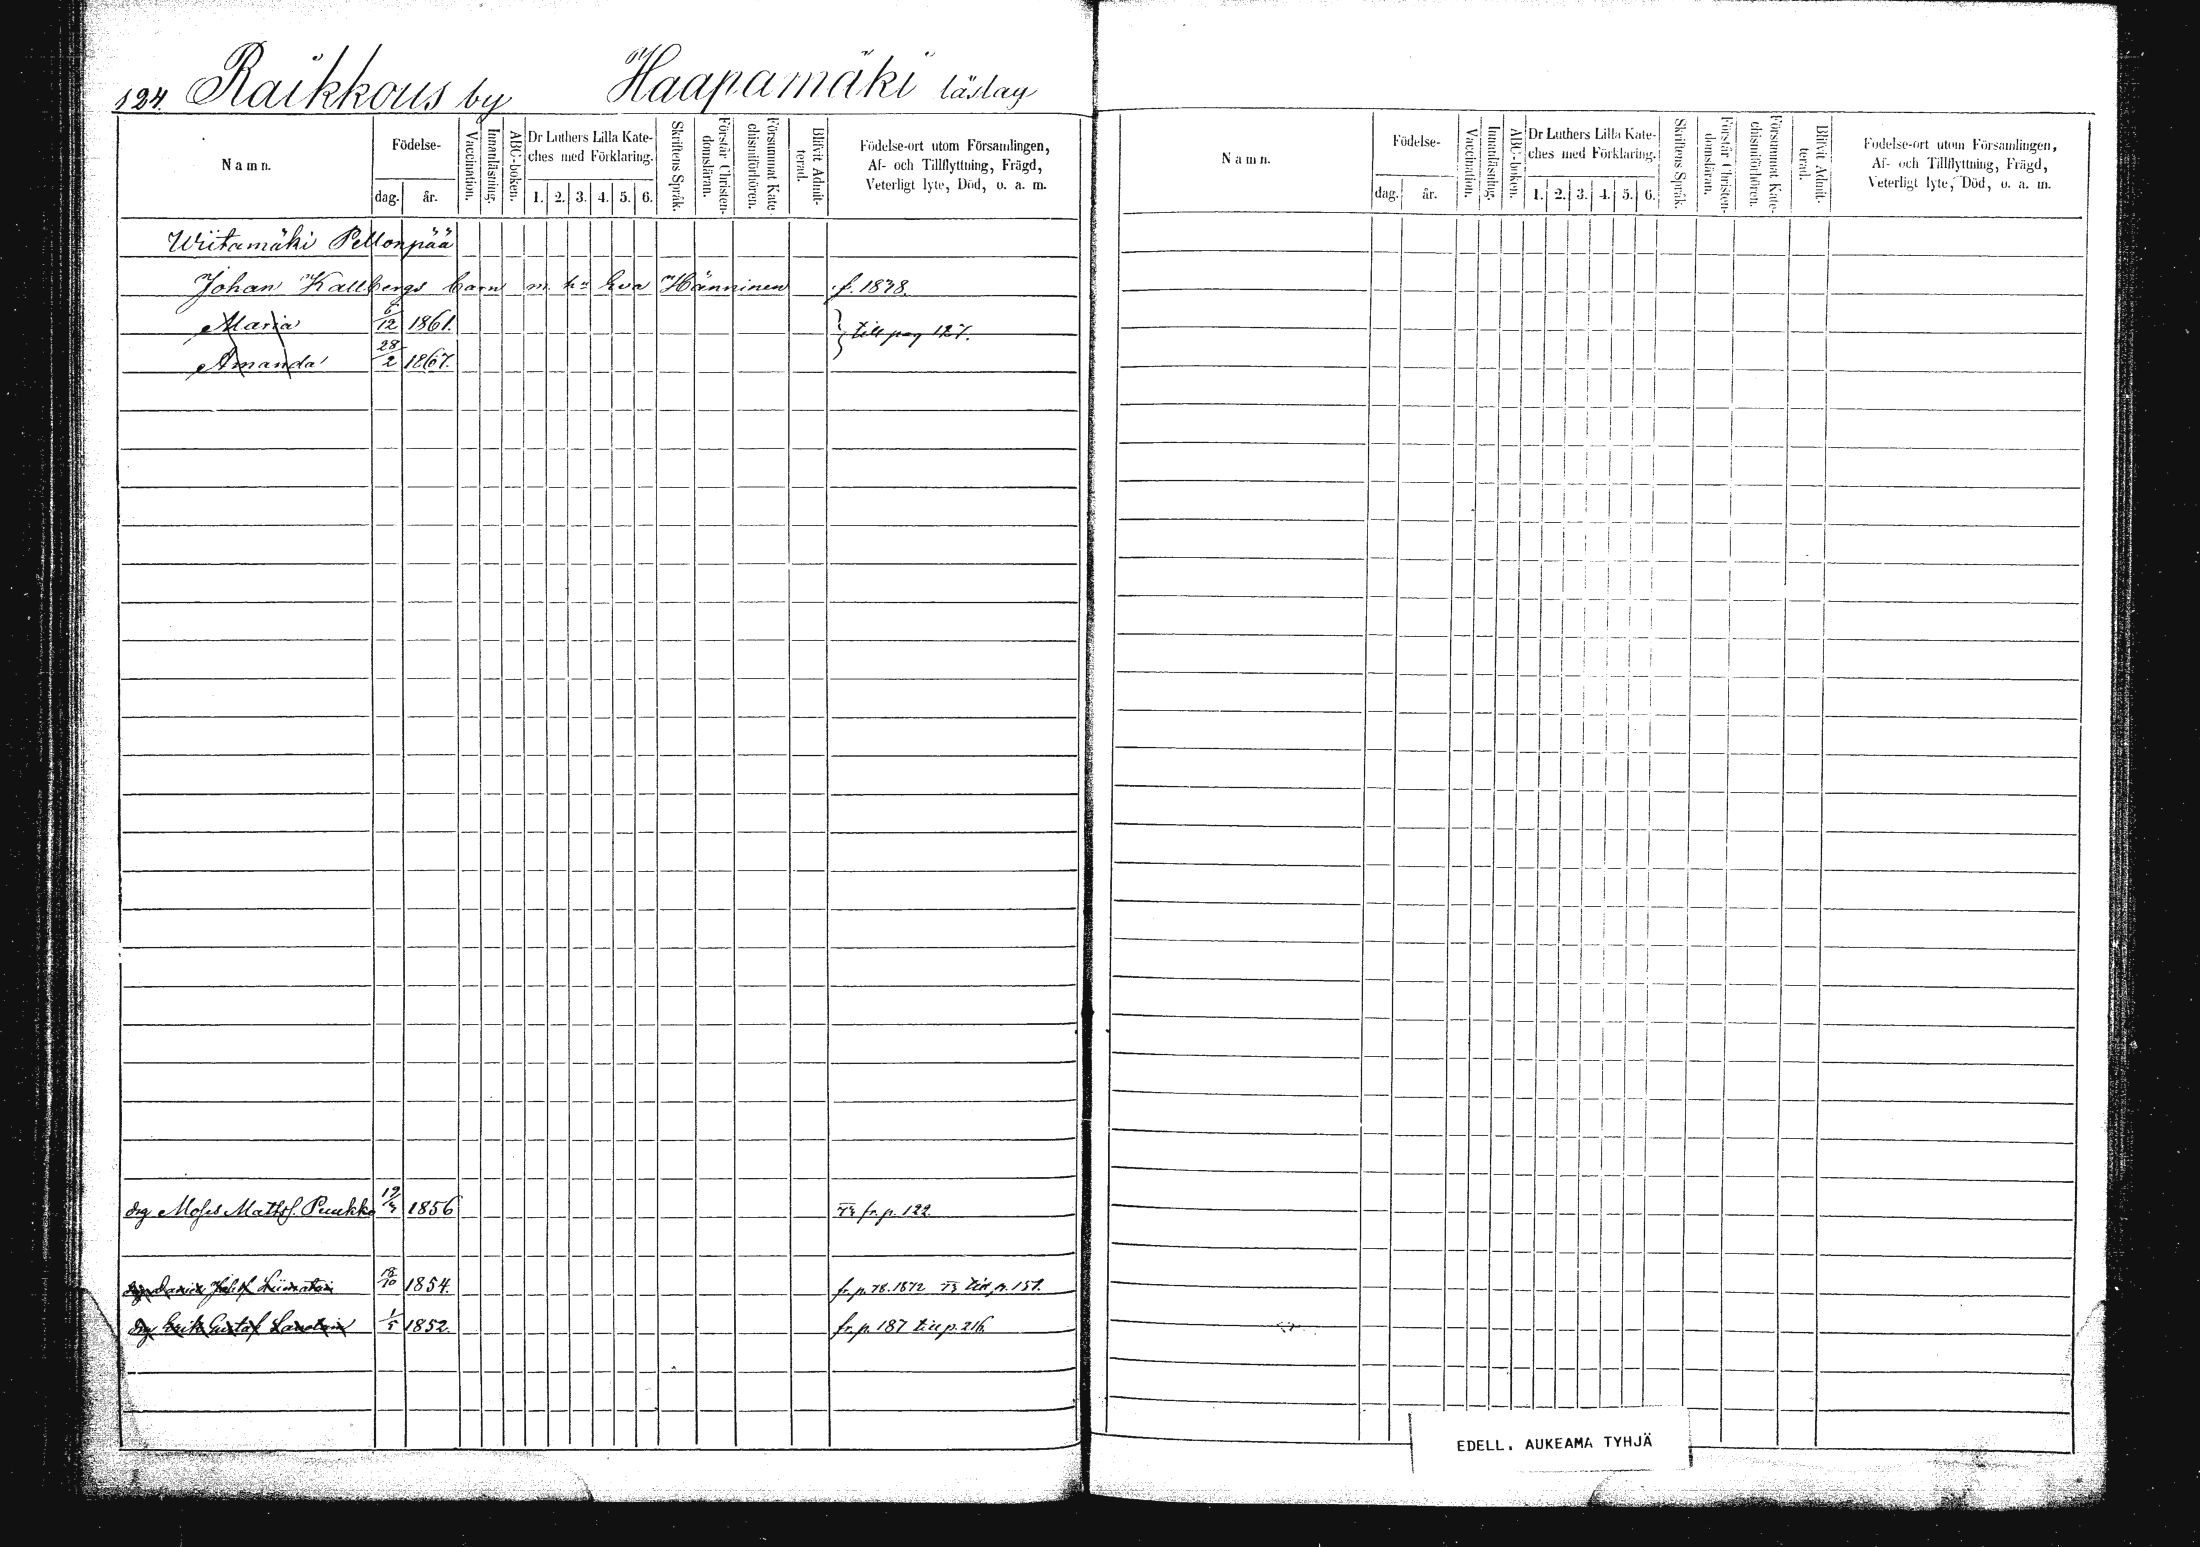 124. Raikkous by Haapamäki läslag
Namn.
Födelse-
dag. år.
Vaccination.
Innanläsning.
ABC-boken.
Dr Luthers Lilla Kate-
ches med Förklaring.
1. 2. 3. 4. 5. 6.
Skriftens Språk.
Förstår Christen-
domsläran.
Försummat Kate-
chismiförhören.
Blifvit Admit-
terad.
Födelse-ort utom Församlingen,
Af- och Tillflyttning, Frägd,
Veterligt lyte, Död, o. a. m.
Wiitamäki Pellonpää
Johan Kallbergs barn m. hu Eva Hänninen f. 1838.
Maria 6/12 1861.
till pag 127.
Amanda 28/2 1867.
drg Moses Matts. Puukko 19/4 1856 73 fr. p. 122.
drg Daniel Liimatain 18/10 1854. fr. p. 78. 1872 73 till p. 151.
drg Erik Gustaf 1/5 1852. fr. p. 187 till p. 216.
Namn.
Födelse-
dag. år.
Vaccination.
Innanläsning.
ABC-boken.
Dr Luthers Lilla Kate-
ches med Förklaring.
1. 2. 3. 4. 5. 6.
Skriftens Språk.
Förstår Christen-
domsläran.
Försummat Kate-
chismiförhören.
Blifvit Admit-
terad.
Födelse-ort utom Församlingen,
Af- och Tillflyttning, Frägd,
Veterligt lyte, Död, o. a. m.
EDELL. AUKEAMA TYHJÄ